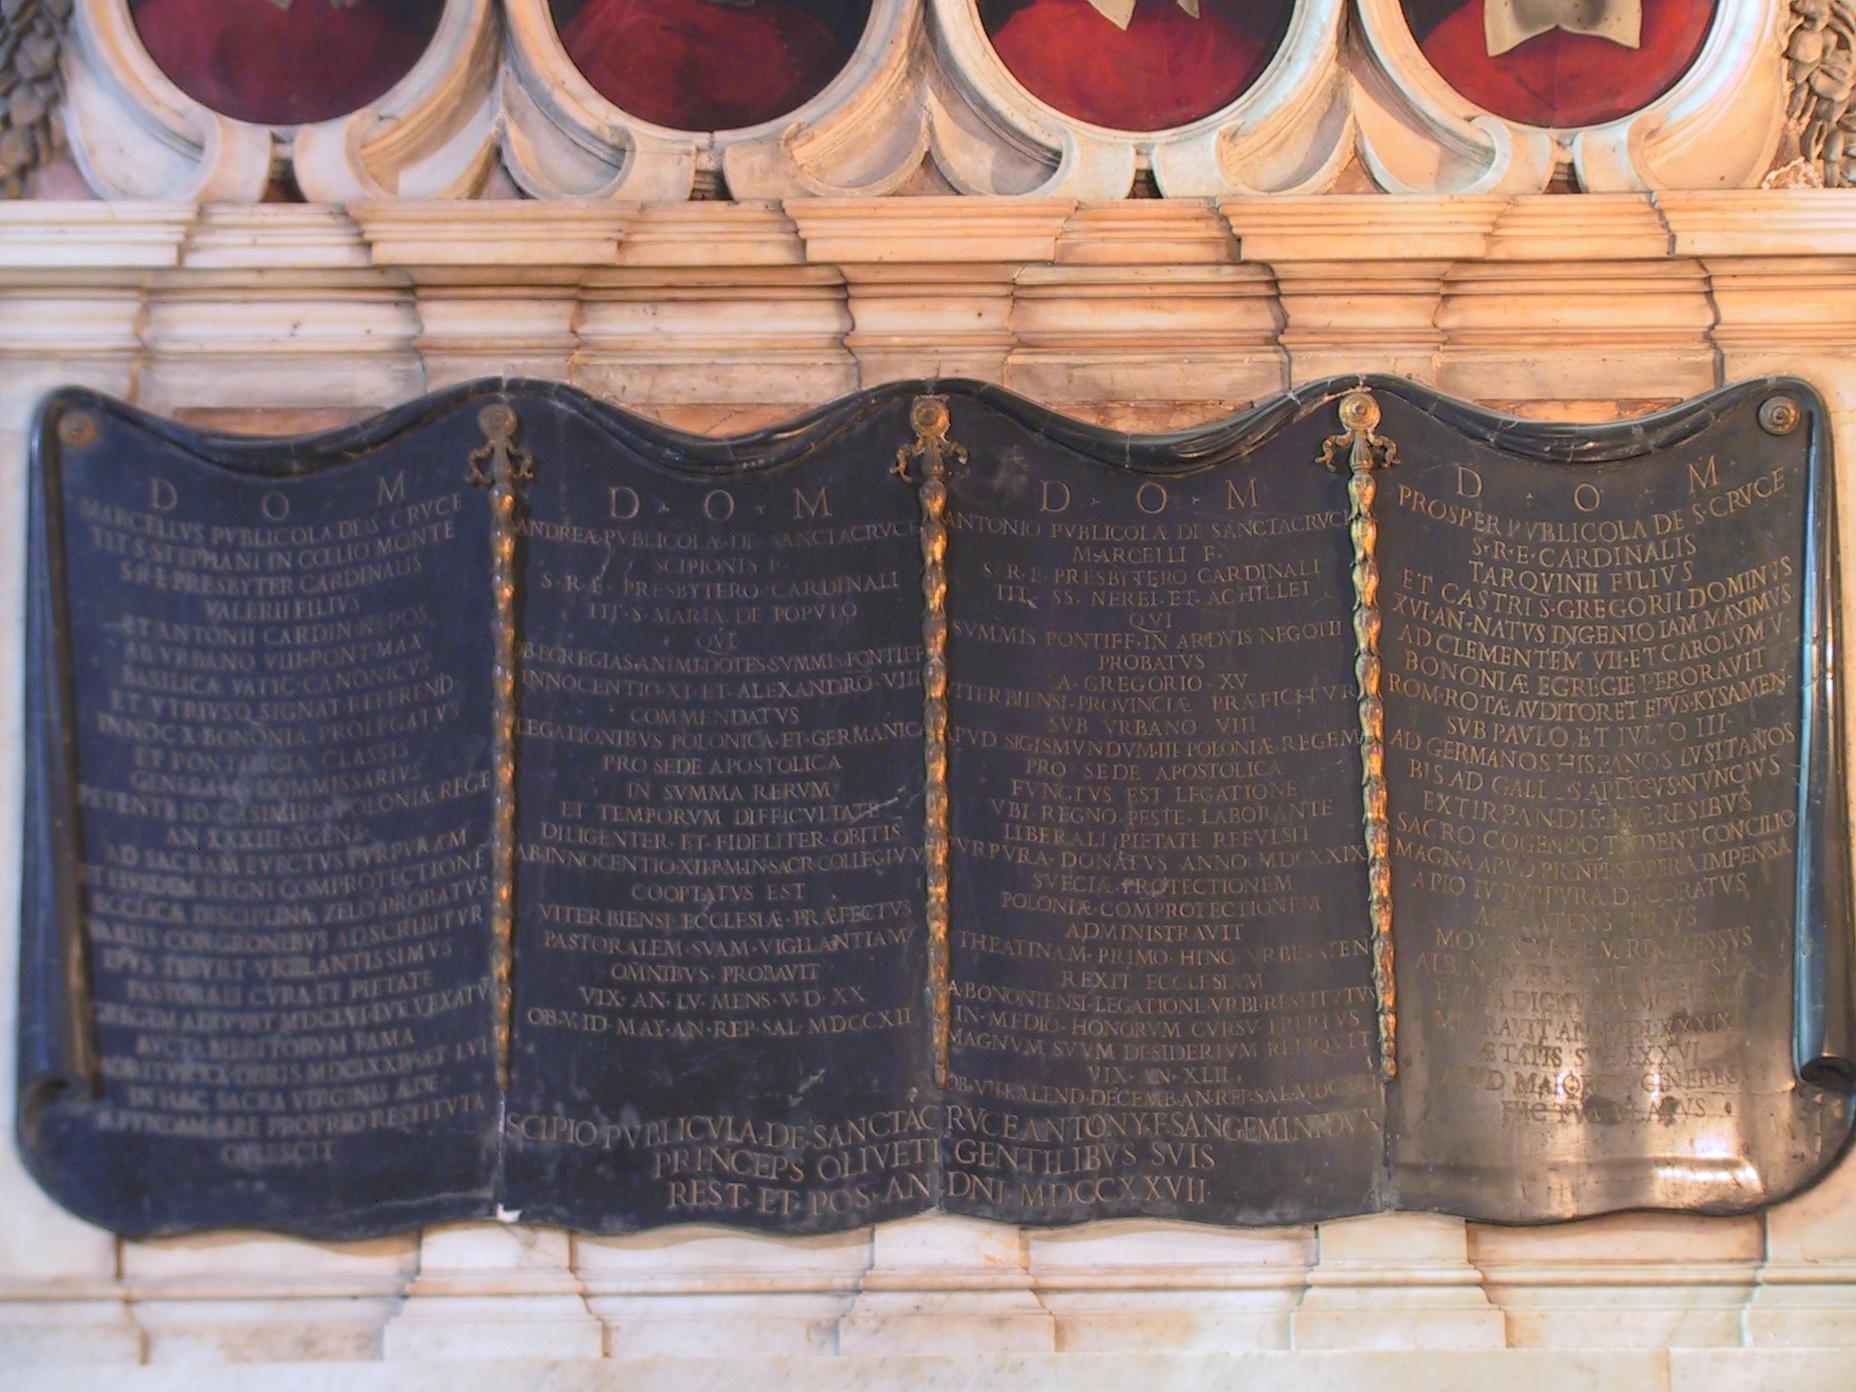 D O M
MARCELLVS PVBLICOLA DE S. CRVCE
TIT S STEPHANI IN CŒLIO MONTE
S·R·E·PRESBYTER CARDINALIS
VALERII FILIVS
ET ANTONII CARDIN·NEPOS
AB VRBANO VIII·PONT·MAX
BASILICÆ VATIC·CANONICVS
ET VTRIVSQ SIGNAT·REFEREND
INNOC X·BONONIÆ PROLEGATVS
ET PONTIFICIÆ CLASSIS
GENERALIS COMMISSARIVS
PETENTE IO·CASIMIRO·POLONIÆ REGE
AN XXXIII AGENS
AD SACRAM EVECTVS PVRPVRAM
ET EIVSDEM REGNI COMPROTECTIONE
ECCLICÆ DISCIPLINÆ ZELO PROBATVS
VARIIS CONGRONIBVS ADSCRIBITVR
EPVS TIBVRT·VIGILANTISSIMVS
PASTORALI CVRA ET PIETATE
GREGEM ADIVVAT MDCLVI LVE VEXATV
AVCTA MERITORVM FAMA
MORITVR XX DBRIS MDCLXXIV ÆT·LVI
IN HAC SACRA VIRGINIS ÆDE
A FVNDAM ÆRE PROPRIO RESTITVTA
QVIESCIT
D · O · M
ANDREÆ·PVBLICOLÆ·DE·SANCTACRVCE
SCIPIONIS F·
S·R·E· PRESBYTERO·CARDINALI
TIT·S·MARIÆ DE POPVLO
QVI
OB·EGREGIAS·ANIMI·DOTES·SVMMIS·PONTIFF
INNOCENTIO·XI·ET·ALEXANDRO·VIII
COMMENDATVS
LEGATIONIBVS POLONICA·ET·GERMANIC
PRO SEDE APOSTOLICA
IN SVMMA RERVM
ET TEMPORVM DIFFICVLTATE
DILIGENTER·ET·FIDELITER·OBITIS
AB·INNOCENTIO·XII·P·M·IN·SACR·COLLEGIVM
COOPTATVS EST
VITERBIENSI·ECCLESIÆ·PRÆFECTVS
PASTORALEM·SVAM·VIGILANTIAM
OMNIBVS·PROBAVIT
VIX·AN·LV·MENS·V·D·XX
OB·V·ID·MAY·AN·REP·SAL·MDCCXII
D · O · M
ANTONIO PVBLICOLÆ DE SANCTACRVCE
MARCELLI F·
S·R·E·PRESBYTERO CARDINALI
TIT· SS· NEREI·ET·ACHILLEI
QVI
SVMMIS PONTIFF·IN ARDVIS NEGOTII
PROBATVS
A·GREGORIO XV
VITERBIENSI·PROVINCIÆ PRÆFICITVR
SVB VRBANO VIII
APVD SIGISMVNDVM·III POLONIÆ·REGEM
PRO SEDE APOSTOLICA
FVNCTVS EST LEGATIONE
VBI·REGNO·PESTE·LABORANTE
LIBERALI·PIETATE REFVLSIT
PVRPVRA·DONATVS ANNO·MDCXXIX
SVECIÆ·PROTECTIONEM
POLONIÆ·COMPROTECTIONEM
ADMINISTRAVIT
THEATINAM·PRIMO·HINC·VRBINATEN
REXIT ECCLESIAM
A·BONONIENSI·LEGATIONE·VRBI·RESTITVTVS
IN·MEDIO·HONORVM CVRSV EREPTVS
MAGNVM SVVM DESIDERIVM RELIQVIT
VIX·AN·XLII
OB·VII·KALEND·DECEMB·AN·REP·SAL·MDCXLI
D · O · M
PROSPER PVBLICOLA DE S·CRVCE
S·R·E·CARDINALIS
TARQVINII FILIVS
ET CASTRI S·GREGORII DOMINVS
XVI·AN·NATVS INGENIO IAM MAXIMVS
AD CLEMENTEM VII·ET CAROLVM V·
BONONIÆ EGREGIE PERORAVIT
ROM·ROTÆ AVDITOR ET EPVS·KYSAMEN·
SVB PAVLO ET IVLIO III·
AD GERMANOS HISPANOS LVSITANOS
BIS AD GALLOS APLICVS·NVNCIVS
EXTIRPANDIS HÆRESIBVS
SACRO COGENDO TRIDENT CONCILIO
MAGNA APVD PRINPES OPERA IMPENSA
A PIO IV PVRPVRA DECORATVS
MOX
MIGRAVIT AN·MDLXXXIX
ÆTATIS SVÆ LXXVI
APVD MAIORES GENERIS
HIC TVMVLATVS
SCIPIO·PVBLICVLA·DE·SANCTACRVCE ANTONY·F·SANGEMINI·DVX
PRINCEPS OLIVETI GENTILIBVS SVIS
REST·ET·POS·AN·DNI·MDCCXXVII·